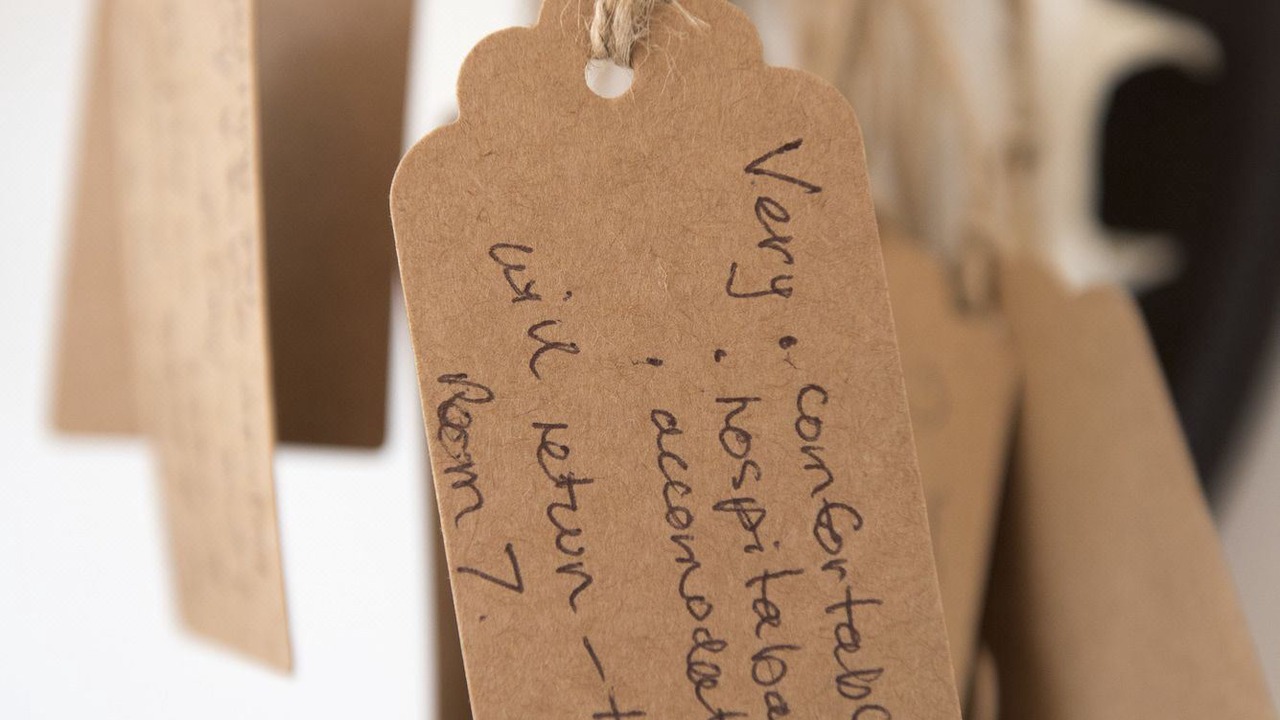 Very • comfortab
• hospitaba
• accomodat
will return –
Room 7.